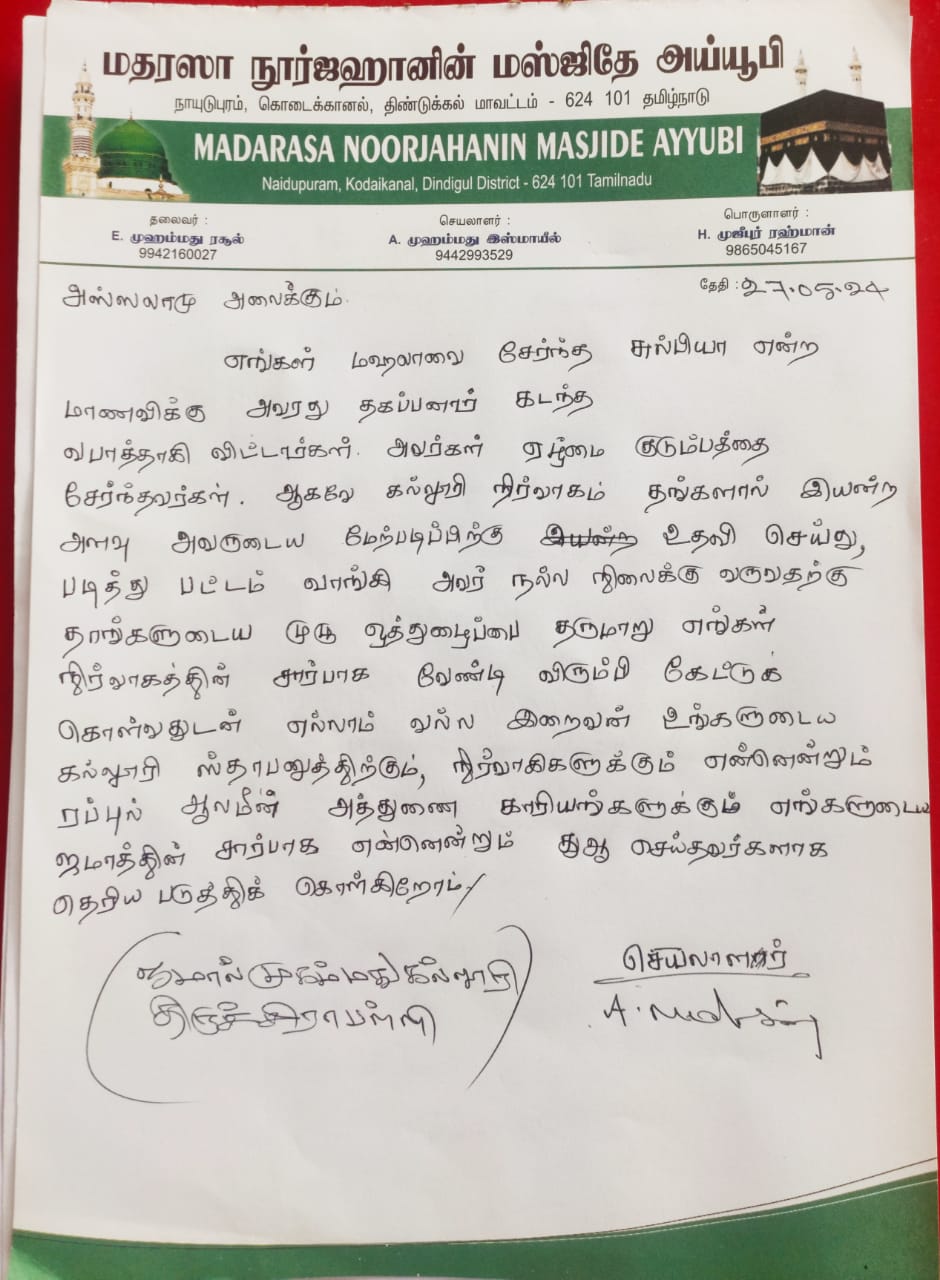 மதரஸா நூர்ஜஹானின் மஸ்ஜிதே அய்யூபி
நாயுடுபுரம், கொடைக்கானல், திண்டுக்கல் மாவட்டம் - 624 101 தமிழ்நாடு
MADARASA NOORJAHANIN MASJIDE AYYUBI
Naidupuram, Kodaikanal, Dindigul District - 624 101 Tamilnadu
தலைவர் :
E. முஹம்மது ரசூல்
9942160027
செயலாளர் :
A. முஹம்மது இஸ்மாயீல்
9442993529
பொருளாளர் :
H. முஜீபுர் ரஹ்மான்
9865045167
தேதி : 27.05.24
அஸ்ஸலாமு அலைக்கும்.
எங்கள் மஹலாவை சேர்ந்த சுல்பியா என்ற
மாணவிக்கு அவரது தகப்பனார் கடந்த
வபாத்தாகி விட்டார்கள். அவர்கள் ஏழ்மை குடும்பத்தை
சேர்ந்தவர்கள். ஆகவே கல்லூரி நிர்வாகம் தங்களால் இயன்ற
அளவு அவருடைய மேற்படிப்பிற்கு உதவி செய்து,
படித்து பட்டம் வாங்கி அவர் நல்ல நிலைக்கு வருவதற்கு
தாங்களுடைய முழு ஒத்துழைப்பை தருமாறு எங்கள்
நிர்வாகத்தின் சார்பாக வேண்டி விரும்பி கேட்டுக்
கொள்வதுடன் எல்லாம் வல்ல இறைவன் உங்களுடைய
கல்லூரி ஸ்தாபனத்திற்கும், நிர்வாகிகளுக்கும் என்னென்றும்
ரப்புல் ஆலமீன் அத்துணை காரியங்களுக்கும் எங்களுடைய
ஜமாத்தின் சார்பாக என்னென்றும் துஆ செய்தவர்களாக
தெரிய படுத்திக் கொள்கிறோம்/
ஜமால் முகம்மது கல்லூரி
திருச்சிராபள்ளி
செயலாளர்